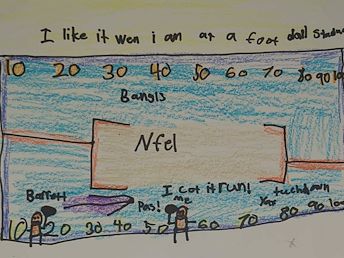 I like it wen i am at a foot ball Stadum
10 20 30 40 50 60 70 80 90 10
Bangls
Nfel
Barrett
Pas!
I cot it run!
me
tuchdown
Yay
10 20 30 40 50 60 70 80 90 10